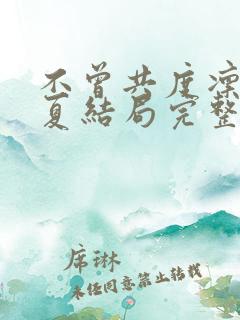 不曾共度凛
夏结局完整
席琳
未经同意禁止转载